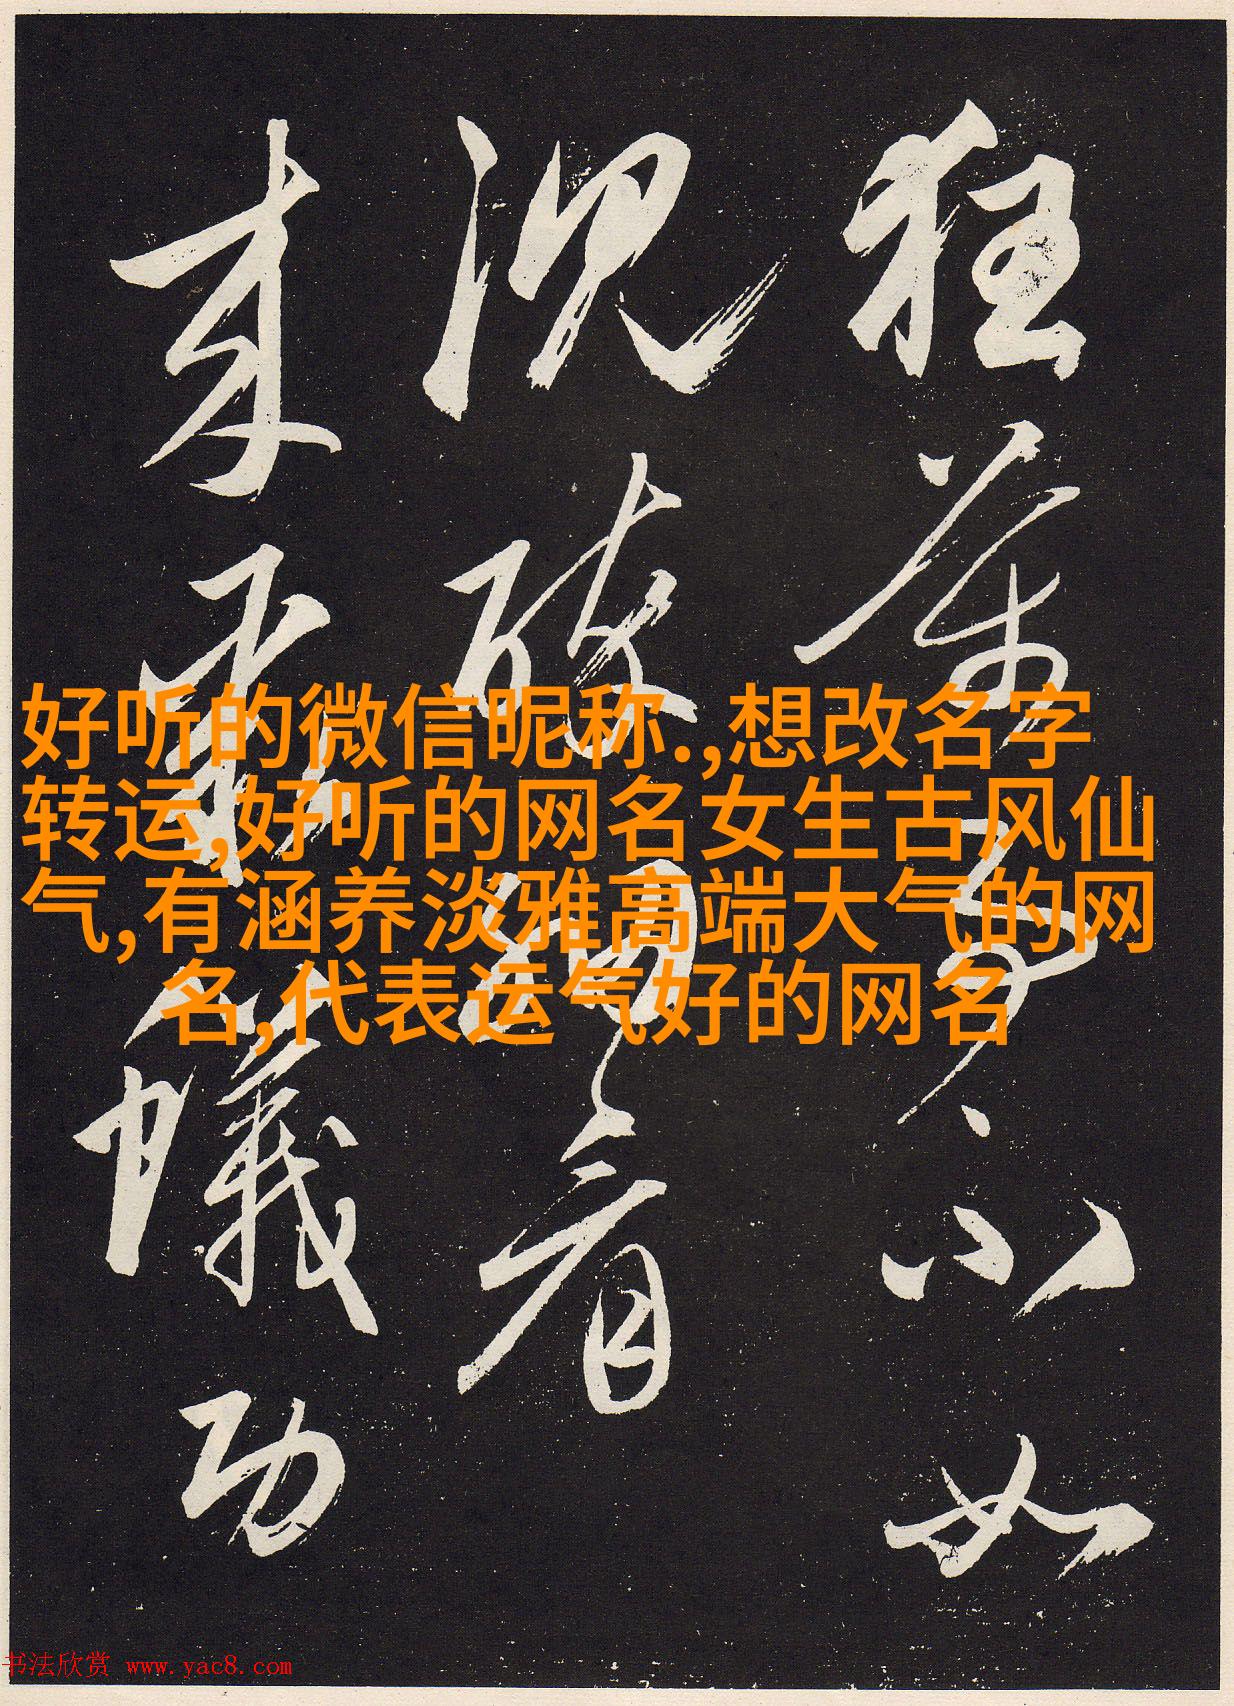 狂 不如
况 看
来 蟻功
好听的微信昵称.,想改名字
转运,好听的网名女生古风仙
气,有涵养淡雅高端大气的网
名,代表运气好的网名
书法欣赏 www.yac8.com